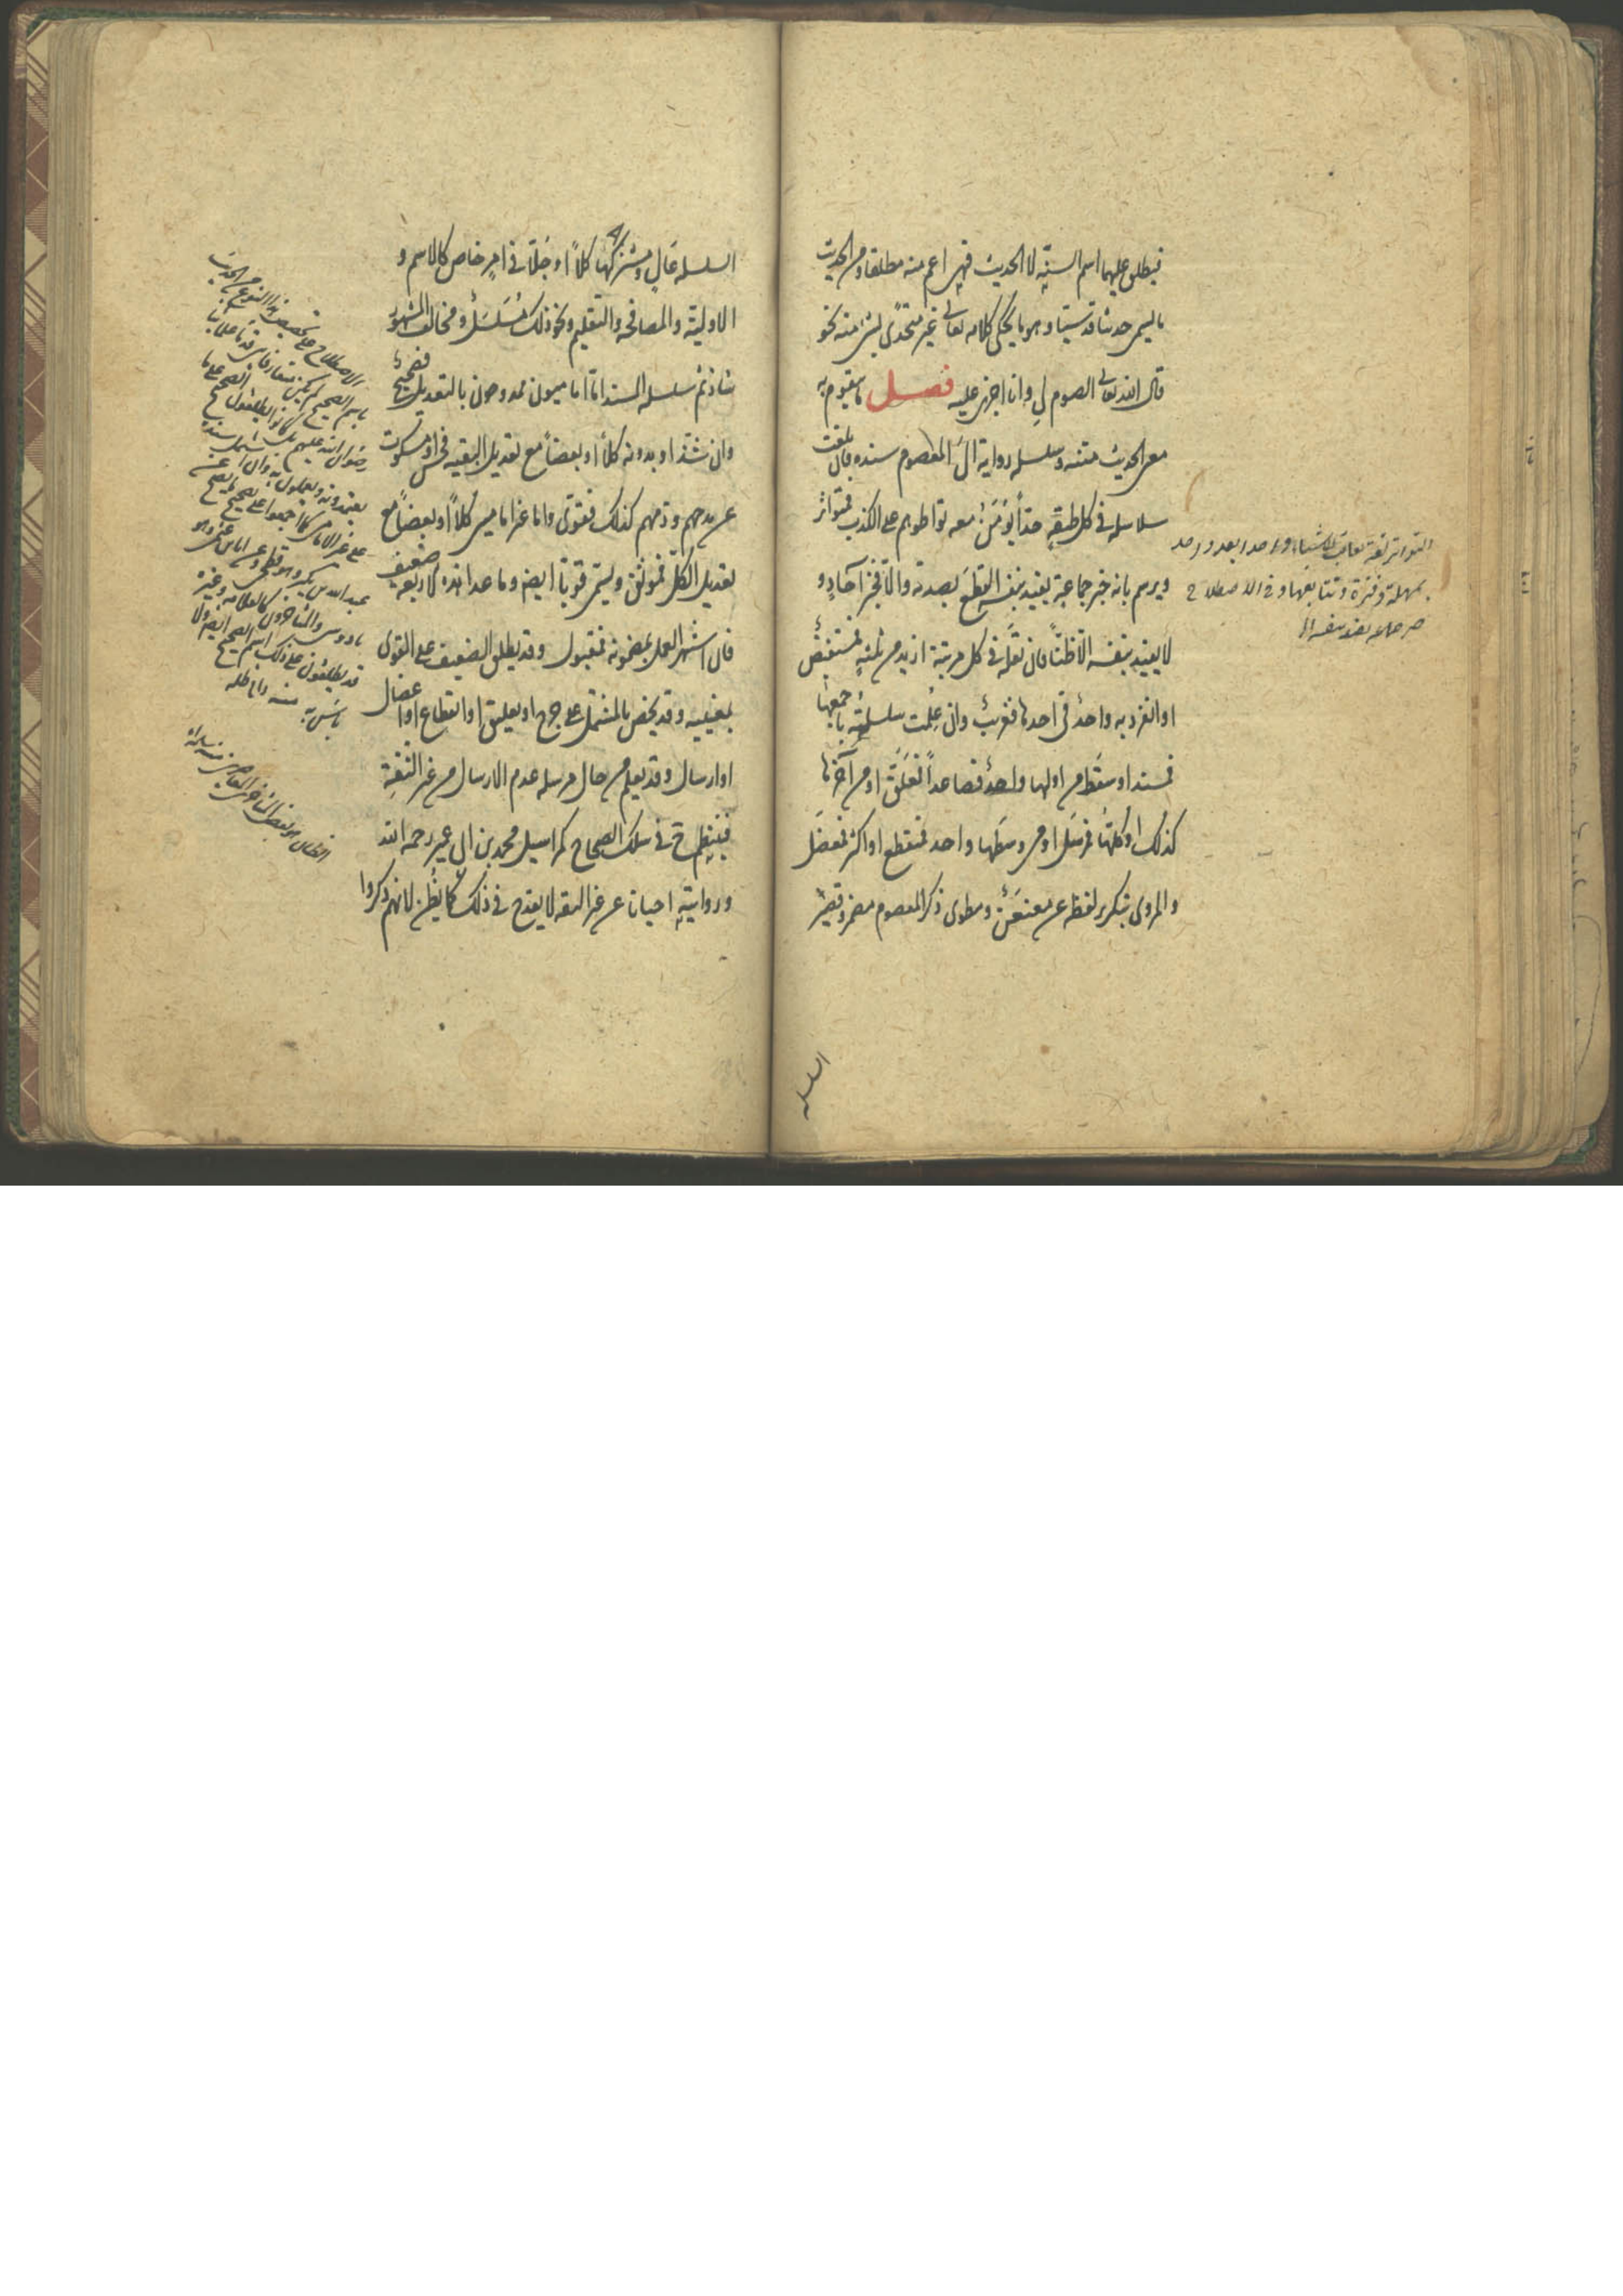 فيطلق عليهما اسم السنة لا الحديث فهي اعم منه مطلقا ومن الحديث
ما يسمى حديثا قدسيا وهو ما يحكى كلامه تعالى غير متحدى بشئ منه نحو
قال الله تعالى الصوم لي وانا اجزى عليه فصل ما يتقوم به
معنى الحديث متنه وسلسلة رواية الى المعصوم سنده فان بلغت
سلاسله في كل طبقة حدا يؤمن معه تواطؤهم على الكذب فمتواتر
ويرسم بانه خبر جماعة يفيد بنفسه القطع بصدقه والا فخبر آحاد و
لا يفيد بنفسه الا ظنا فان نقله في كل مرتبة ازيد من ثلثة فمستفيض
او انفرد به واحد في احدها فغريب وان علمت سلسلته باجمعها
فمسند او سقط من اولها واحد فصاعدا فمعلق او من آخرها
كذلك او كلها فمرسل او من وسطها واحد فمنقطع او اكثر فمعضل
والمروى بتكرير لفظة عن معنعن ومطوى ذكر المعصوم مضمر وقصير
التواتر لغة تعاقب الاشياء واحدا بعد واحد
بمهلة وفترة وتتابعها وفي الاصطلاح
خبر جماعة يفيد بنفسه الخ
السلسله
السلسله عال ومشتركها كلا او جلا في امر خاص كالاسم و
الاولية والمصافحه والتلقيم ونحو ذلك مسلسل ومخالف المشهور
شاذ ثم سلسله المسند اما اماميون ممدوحون بالتعديل فصحيح
وان شذ او بدونه كلا او بعضا مع تعديل البقيه فحسن او مسكوت
عن مدحهم وذمهم كذلك فقوى واما غير اماميين كلا او بعضا مع
تعديل الكل فموثق ويسمى قويا ايضا وما عدا هذه الاربعة ضعيف
فان اشتهر العمل بمضمونه فمقبول وقد يطلق الضعيف على القوى
بمعنييه وقد يخص بالمشتمل على جرح او تعليق او انقطاع او اعضال
او ارسال وقد يعلم من حال مرسله عدم الارسال من غير الثقة
فينتظم ح في سلك الصحاح كمراسيل محمد بن ابي عمير رحمه الله
وروايته احيانا عن غير الثقه لا يقدح في ذلك كما يظن لانهم ذكروا
الاصطلاح على تخصيص هذا النوع من الحديث
باسم الصحيح لم يكن متعارفا بين قدماء علمائنا
رضوان الله عليهم بل كانوا يطلقون الصحيح على ما
يعتمدونه ويعملون به وان اشتمل سنده
على غير الامامى كما اجمعوا على تصحيح ما يصح عن
عبد الله بن بكير وهو فطحى وعن ابان بن عثمن وهو
ناووسى والمتاخرون كالعلامه وغيره
قد يطلقون على ذلك اسم الصحيح ايضا ولا
باس به منه دام ظله